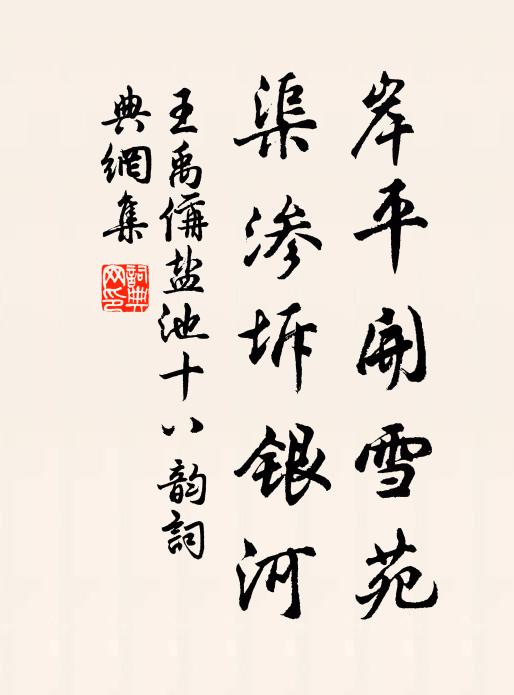 岸平開雪苑
渠滲坼銀河
王禹偁盐池十八韵詞
典網集
詞典網印